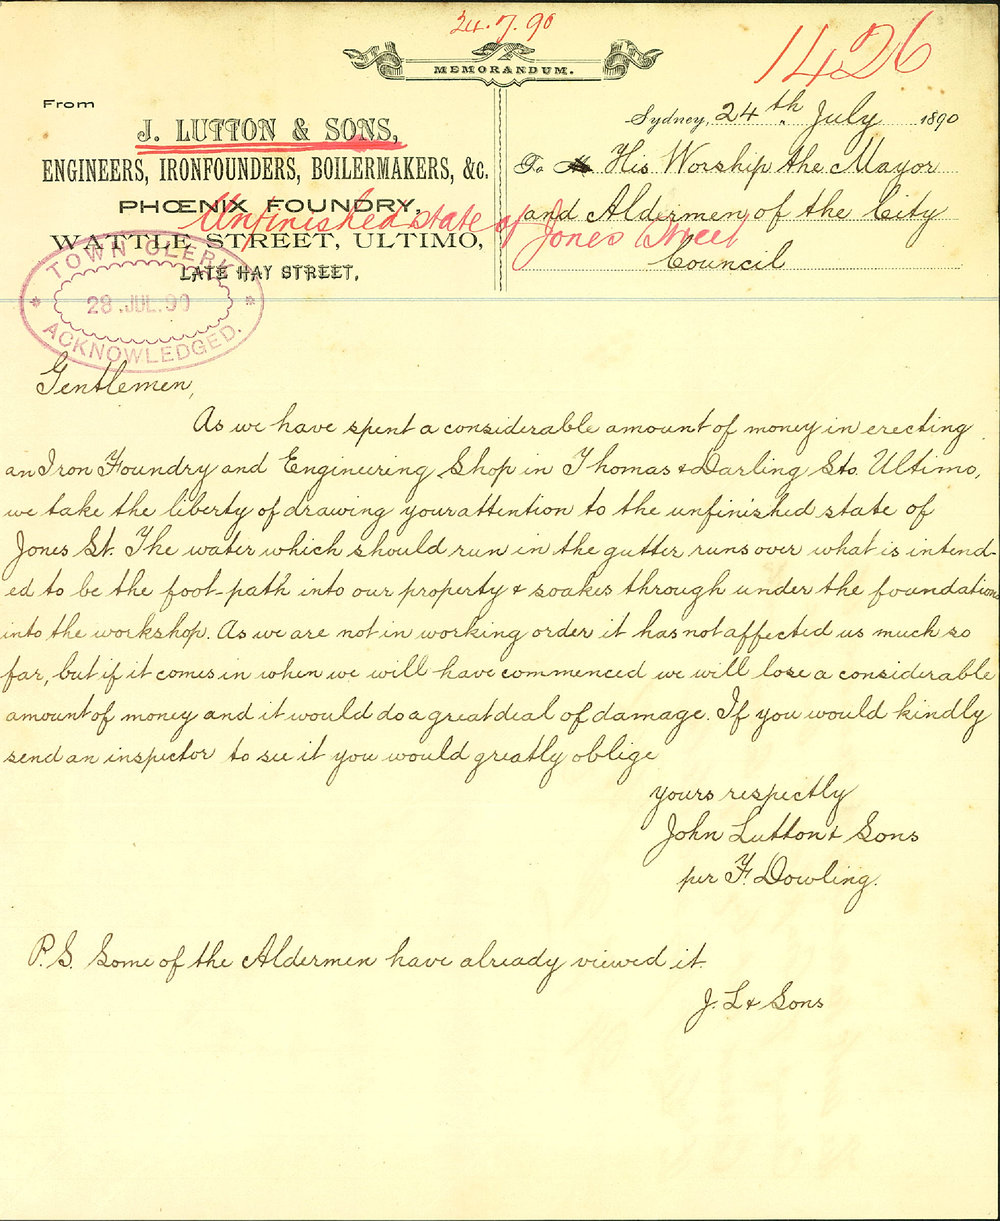 24.7.90
1426
MEMORANDUM.
From
J. LUTTON & SONS,
ENGINEERS, IRONFOUNDERS, BOILERMAKERS, &c.
PHŒNIX FOUNDRY,
WATTLE STREET, ULTIMO,
LATE HAY STREET,
Sydney, 24th July 1890
To His Worship the Mayor
and Aldermen of the City
Council
Unfinished state of Jones Street
TOWN CLERK
28 .JUL.90
ACKNOWLEDGED.
Gentlemen,
As we have spent a considerable amount of money in erecting
an Iron Foundry and Engineering Shop in Thomas & Darling Sts. Ultimo,
we take the liberty of drawing your attention to the unfinished state of
Jones St. The water which should run in the gutter runs over what is intend-
ed to be the foot-path into our property & soakes through under the foundations
into the workshop. As we are not in working order it has not affected us much so
far, but if it comes in when we will have commenced we will lose a considerable
amount of money and it would do a great deal of damage. If you would kindly
send an inspector to see it you would greatly oblige
yours respectly
John Lutton & Sons
per F. Dowling.
P.S. Some of the Aldermen have already viewed it.
J. L & Sons